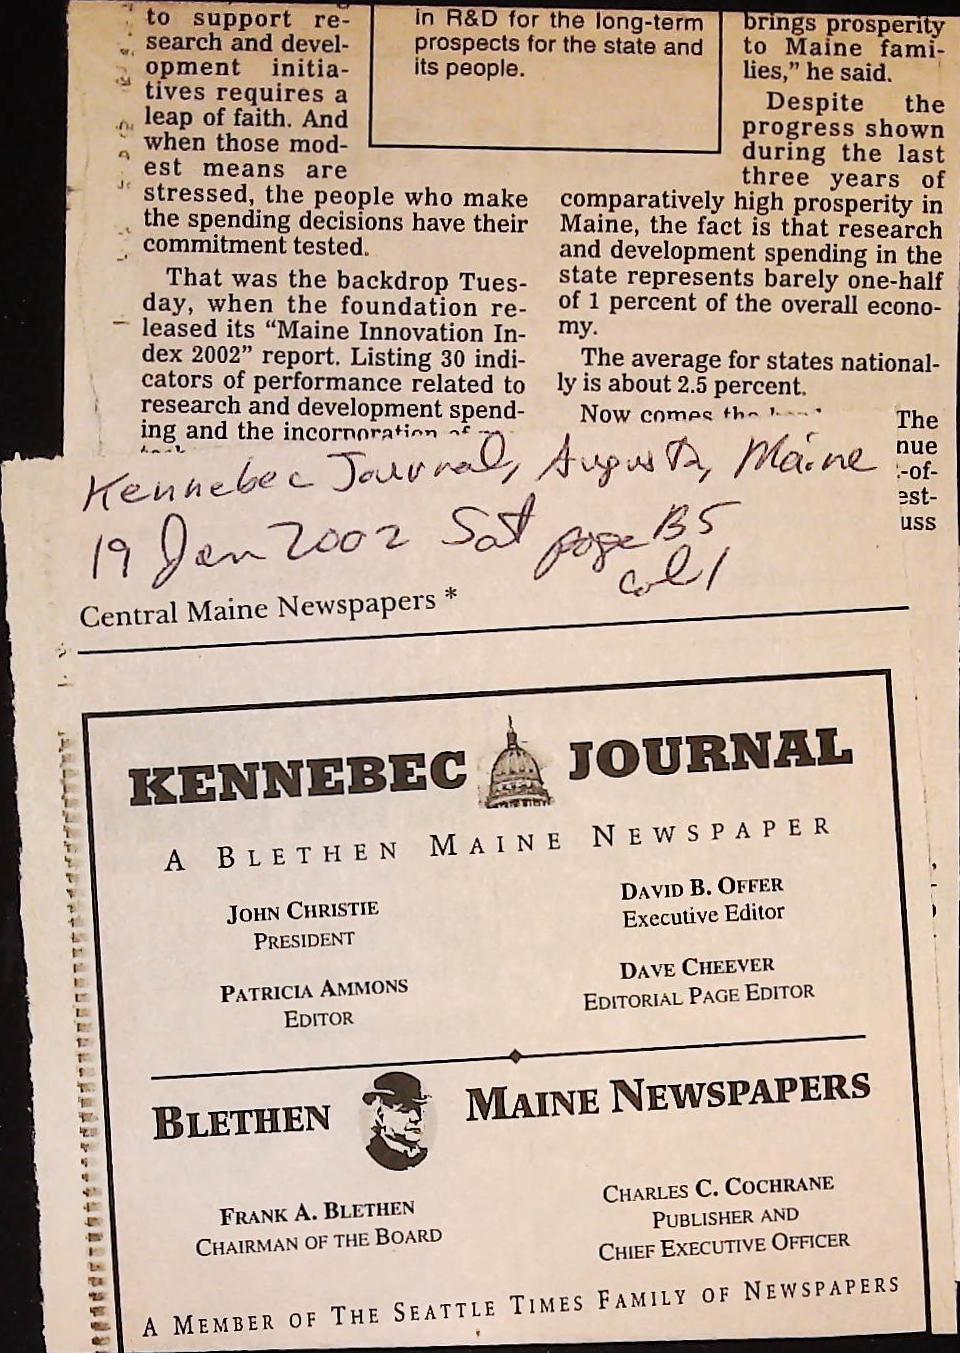 to support re-
search and devel-
opment initia-
tives requires a
leap of faith. And
when those mod-
est means are
stressed, the people who make
the spending decisions have their
commitment tested.
That was the backdrop Tues-
day, when the foundation re-
leased its “Maine Innovation In-
dex 2002” report. Listing 30 indi-
cators of performance related to
research and development spend-
ing and the incorporation of
in R&D for the long-term
prospects for the state and
its people.
brings prosperity
to Maine fami-
lies,” he said.
Despite the
progress shown
during the last
three years of
comparatively high prosperity in
Maine, the fact is that research
and development spending in the
state represents barely one-half
of 1 percent of the overall econo-
my.
The average for states national-
ly is about 2.5 percent.
Now comes the
The
nue
-of-
est-
uss
Kennebec Journal, Augusta, Maine
19 Jan 2002 Sat page B5
col 1
Central Maine Newspapers *
KENNEBEC JOURNAL
A BLETHEN MAINE NEWSPAPER
JOHN CHRISTIE
PRESIDENT
PATRICIA AMMONS
EDITOR
DAVID B. OFFER
Executive Editor
DAVE CHEEVER
EDITORIAL PAGE EDITOR
BLETHEN MAINE NEWSPAPERS
FRANK A. BLETHEN
CHAIRMAN OF THE BOARD
CHARLES C. COCHRANE
PUBLISHER AND
CHIEF EXECUTIVE OFFICER
A MEMBER OF THE SEATTLE TIMES FAMILY OF NEWSPAPERS